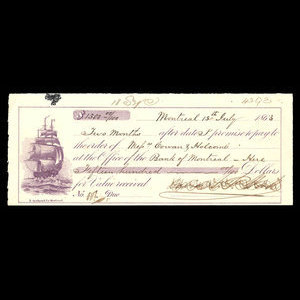 18 Sep
$1500 00/100 Montreal 15th July 1863
Two Months after date I promise to pay to
the order of Messrs Cowan & Holcomb
at the Office of the Bank of Montreal – Here
Fifteen hundred Dollars
for Value received
No. Due